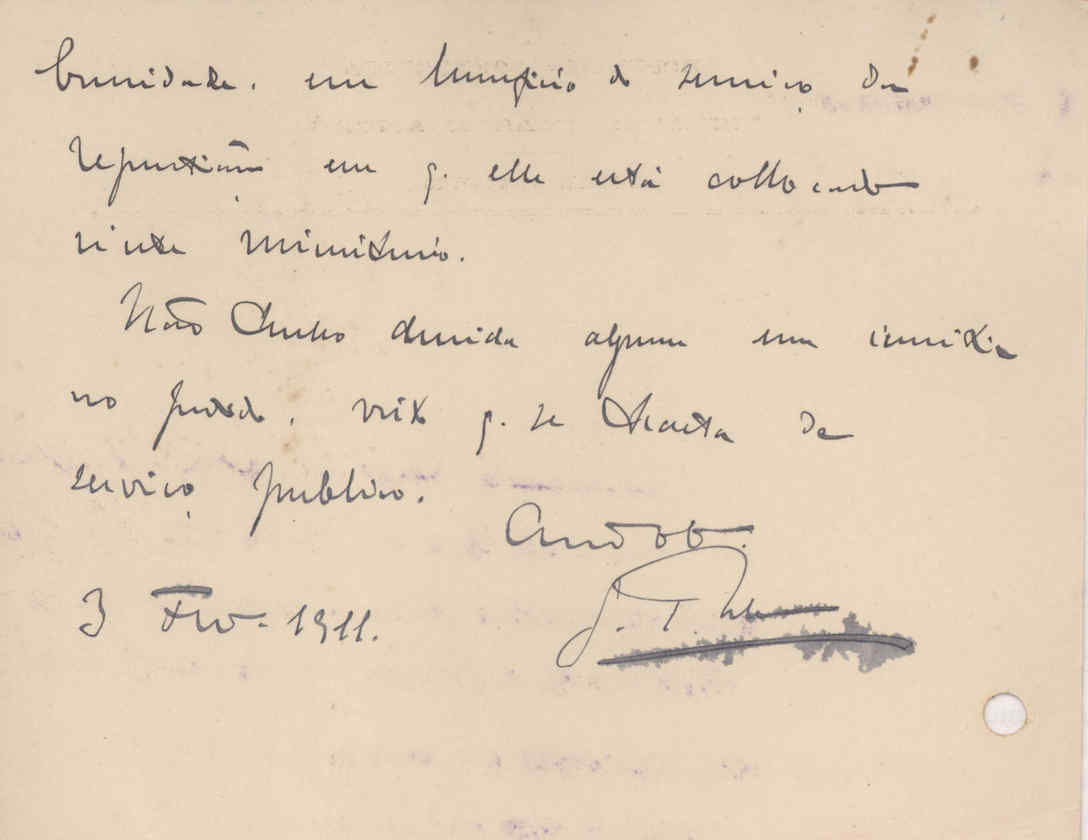 bunidade, em beneficio do serviço da
repartição em q. elle está collocado
n'este Ministerio.
Não tenho duvida alguma em insistir
no pedido, visto q. se tracta de
serviço publico.
3 Fev. 1911.